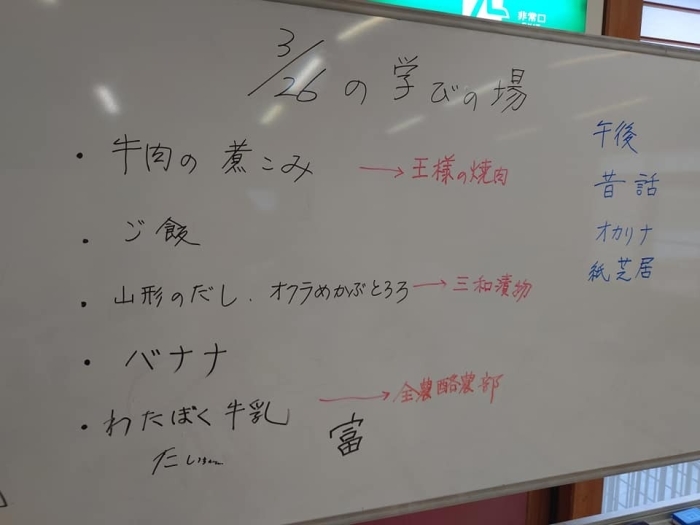 非常口
3/26 の 学びの場
・牛肉の煮こみ → 王様の焼肉
・ご飯
・山形のだし、オクラめかぶとろろ → 三和漬物
・バナナ
・わたぼく牛乳 → 全農酪農部
富
午後
昔話
オカリナ
紙芝居